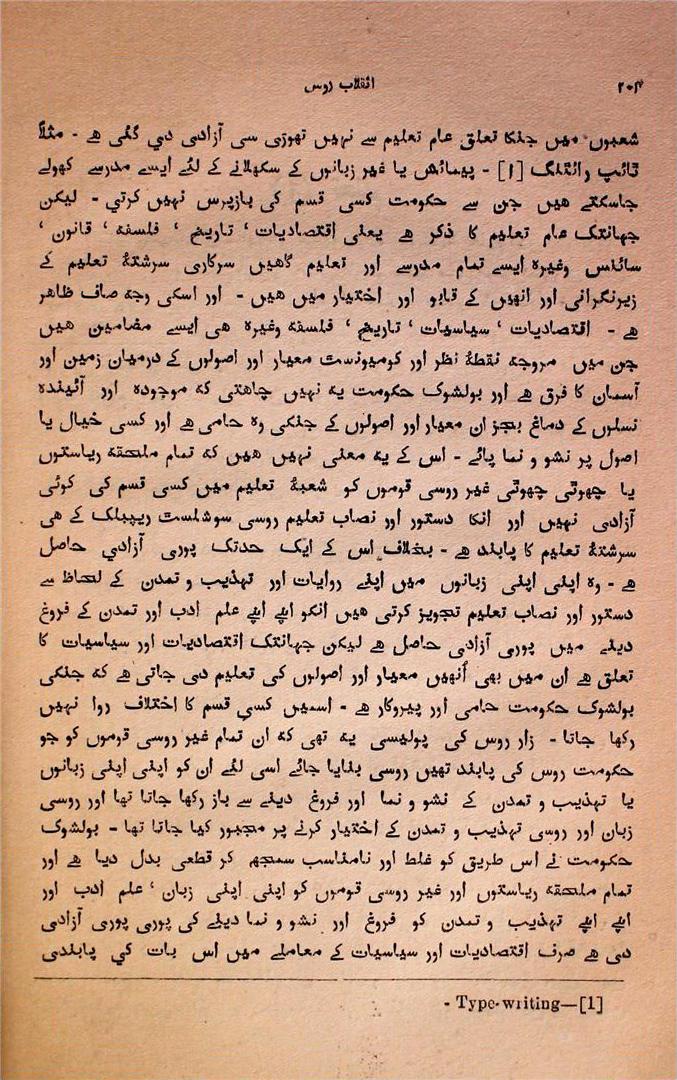 ۲۰۴ انقلاب روس
شعبوں میں جنکا تعلق عام تعلیم سے نہیں تھوڑی سی آزادی دی گئی ھے - مثلاً
ٹائپ رائٹنگ [1] - پیمائش یا غیر زبانوں کے سکھلانے کے لئے ایسے مدرسے کھولے
جاسکتے ھیں جن سے حکومت کسی قسم کی بازپرس نہیں کرتی - لیکن
جہانتک عام تعلیم کا ذکر ھے یعنی اقتصادیات ' تاریخ ' فلسفہ ' قانون '
سائنس وغیرہ ایسے تمام مدرسے اور تعلیم گاھیں سرکاری سرشتۂ تعلیم کے
زیرنگرانی اور انہیں کے قابو اور اختیار میں ھیں - اور اسکی وجہ صاف ظاھر
ھے - اقتصادیات ' سیاسیات ' تاریخ ' فلسفہ وغیرہ ھی ایسے مضامین ھیں
جن میں مروجہ نقطۂ نظر اور کومیونسٹ معیار اور اصولوں کے درمیان زمین اور
آسمان کا فرق ھے اور بولشوک حکومت یہ نہیں چاھتی کہ موجودہ اور آئیندہ
نسلوں کے دماغ بجز ان معیار اور اصولوں کے جنکی وہ حامی ھے اور کسی خیال یا
اصول پر نشو و نما پائے - اس کے یہ معنی نہیں ھیں کہ تمام ملحقہ ریاستوں
یا چھوٹی چھوٹی غیر روسی قوموں کو شعبۂ تعلیم میں کسی قسم کی کوئی
آزادی نہیں اور انکا دستور اور نصاب تعلیم روسی سوشلسٹ ریپبلک کے ھی
سرشتۂ تعلیم کا پابند ھے - بخلاف اس کے ایک حدتک پوری آزادی حاصل
ھے - وہ اپنی اپنی زبانوں میں اپنے روایات اور تہذیب و تمدن کے لحاظ سے
دستور اور نصاب تعلیم تجویز کرتی ھیں انکو اپنے اپنے علم ادب اور تمدن کے فروغ
دینے میں پوری آزادی حاصل ھے لیکن جہانتک اقتصادیات اور سیاسیات کا
تعلق ھے ان میں بھی اُنھیں معیار اور اصولوں کی تعلیم دی جاتی ھے کہ جنکی
بولشوک حکومت حامی اور پیروکار ھے - اسمیں کسی قسم کا اختلاف روا نہیں
رکھا جاتا - زار روس کی پولیسی یہ تھی کہ ان تمام غیر روسی قوموں کو جو
حکومت روس کی پابند تھیں روسی بنایا جائے اسی لئے ان کو اپنی اپنی زبانوں
یا تہذیب و تمدن کے نشو و نما اور فروغ دینے سے باز رکھا جاتا تھا اور روسی
زبان اور روسی تہذیب و تمدن کے اختیار کرنے پر مجبور کیا جاتا تھا - بولشوک
حکومت نے اس طریق کو غلط اور نامناسب سمجھ کر قطعی بدل دیا ھے اور
تمام ملحقہ ریاستوں اور غیر روسی قوموں کو اپنی اپنی زبان ' علم ادب اور
اپنے اپنے تہذیب و تمدن کو فروغ اور نشو و نما دینے کی پوری پوری آزادی
دی ھے صرف اقتصادیات اور سیاسیات کے معاملے میں اس بات کی پابندی
- Type-writing—[1]